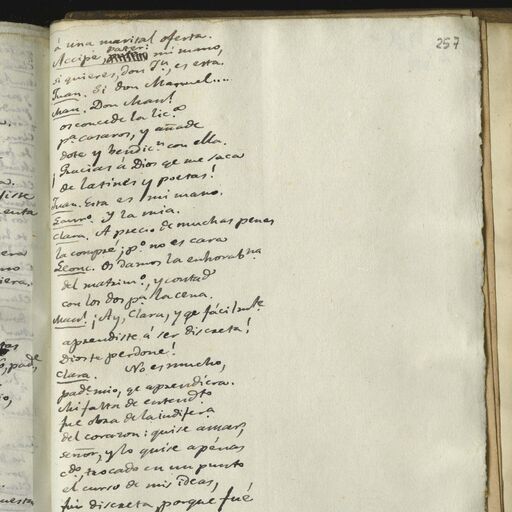 257
á una marital oferta.
Accipe, pater: mi mano,
si quieres, don Jn, es esta.
Juan. Si don Manuel....
Man. Don Manl
os concede la lic.a
pa casaros, y añade
dote y bendicn con ella.
¡Gracias á Dios qe me saca
de latines y poetas!
Juan. Esta es mi mano.
Y la mia.
Clara. A precio de muchas penas
la compré; po no es cara
Leonc. Os damos la enhorabna
del matrimo, y contad
con los dos pa la cena.
Manl. ¡Ay, Clara, y qe fácilmte
aprendiste á ser discreta!
Dios te perdone!
Clara. No es mucho,
padre mio, qe aprendiera.
Mi falta de entendto
fue obra de la indifera
del corazon: quise amar,
señor, y lo quise apénas
cdo, trocado en un punto
el curso de mis ideas,
fui discreta, porque fué